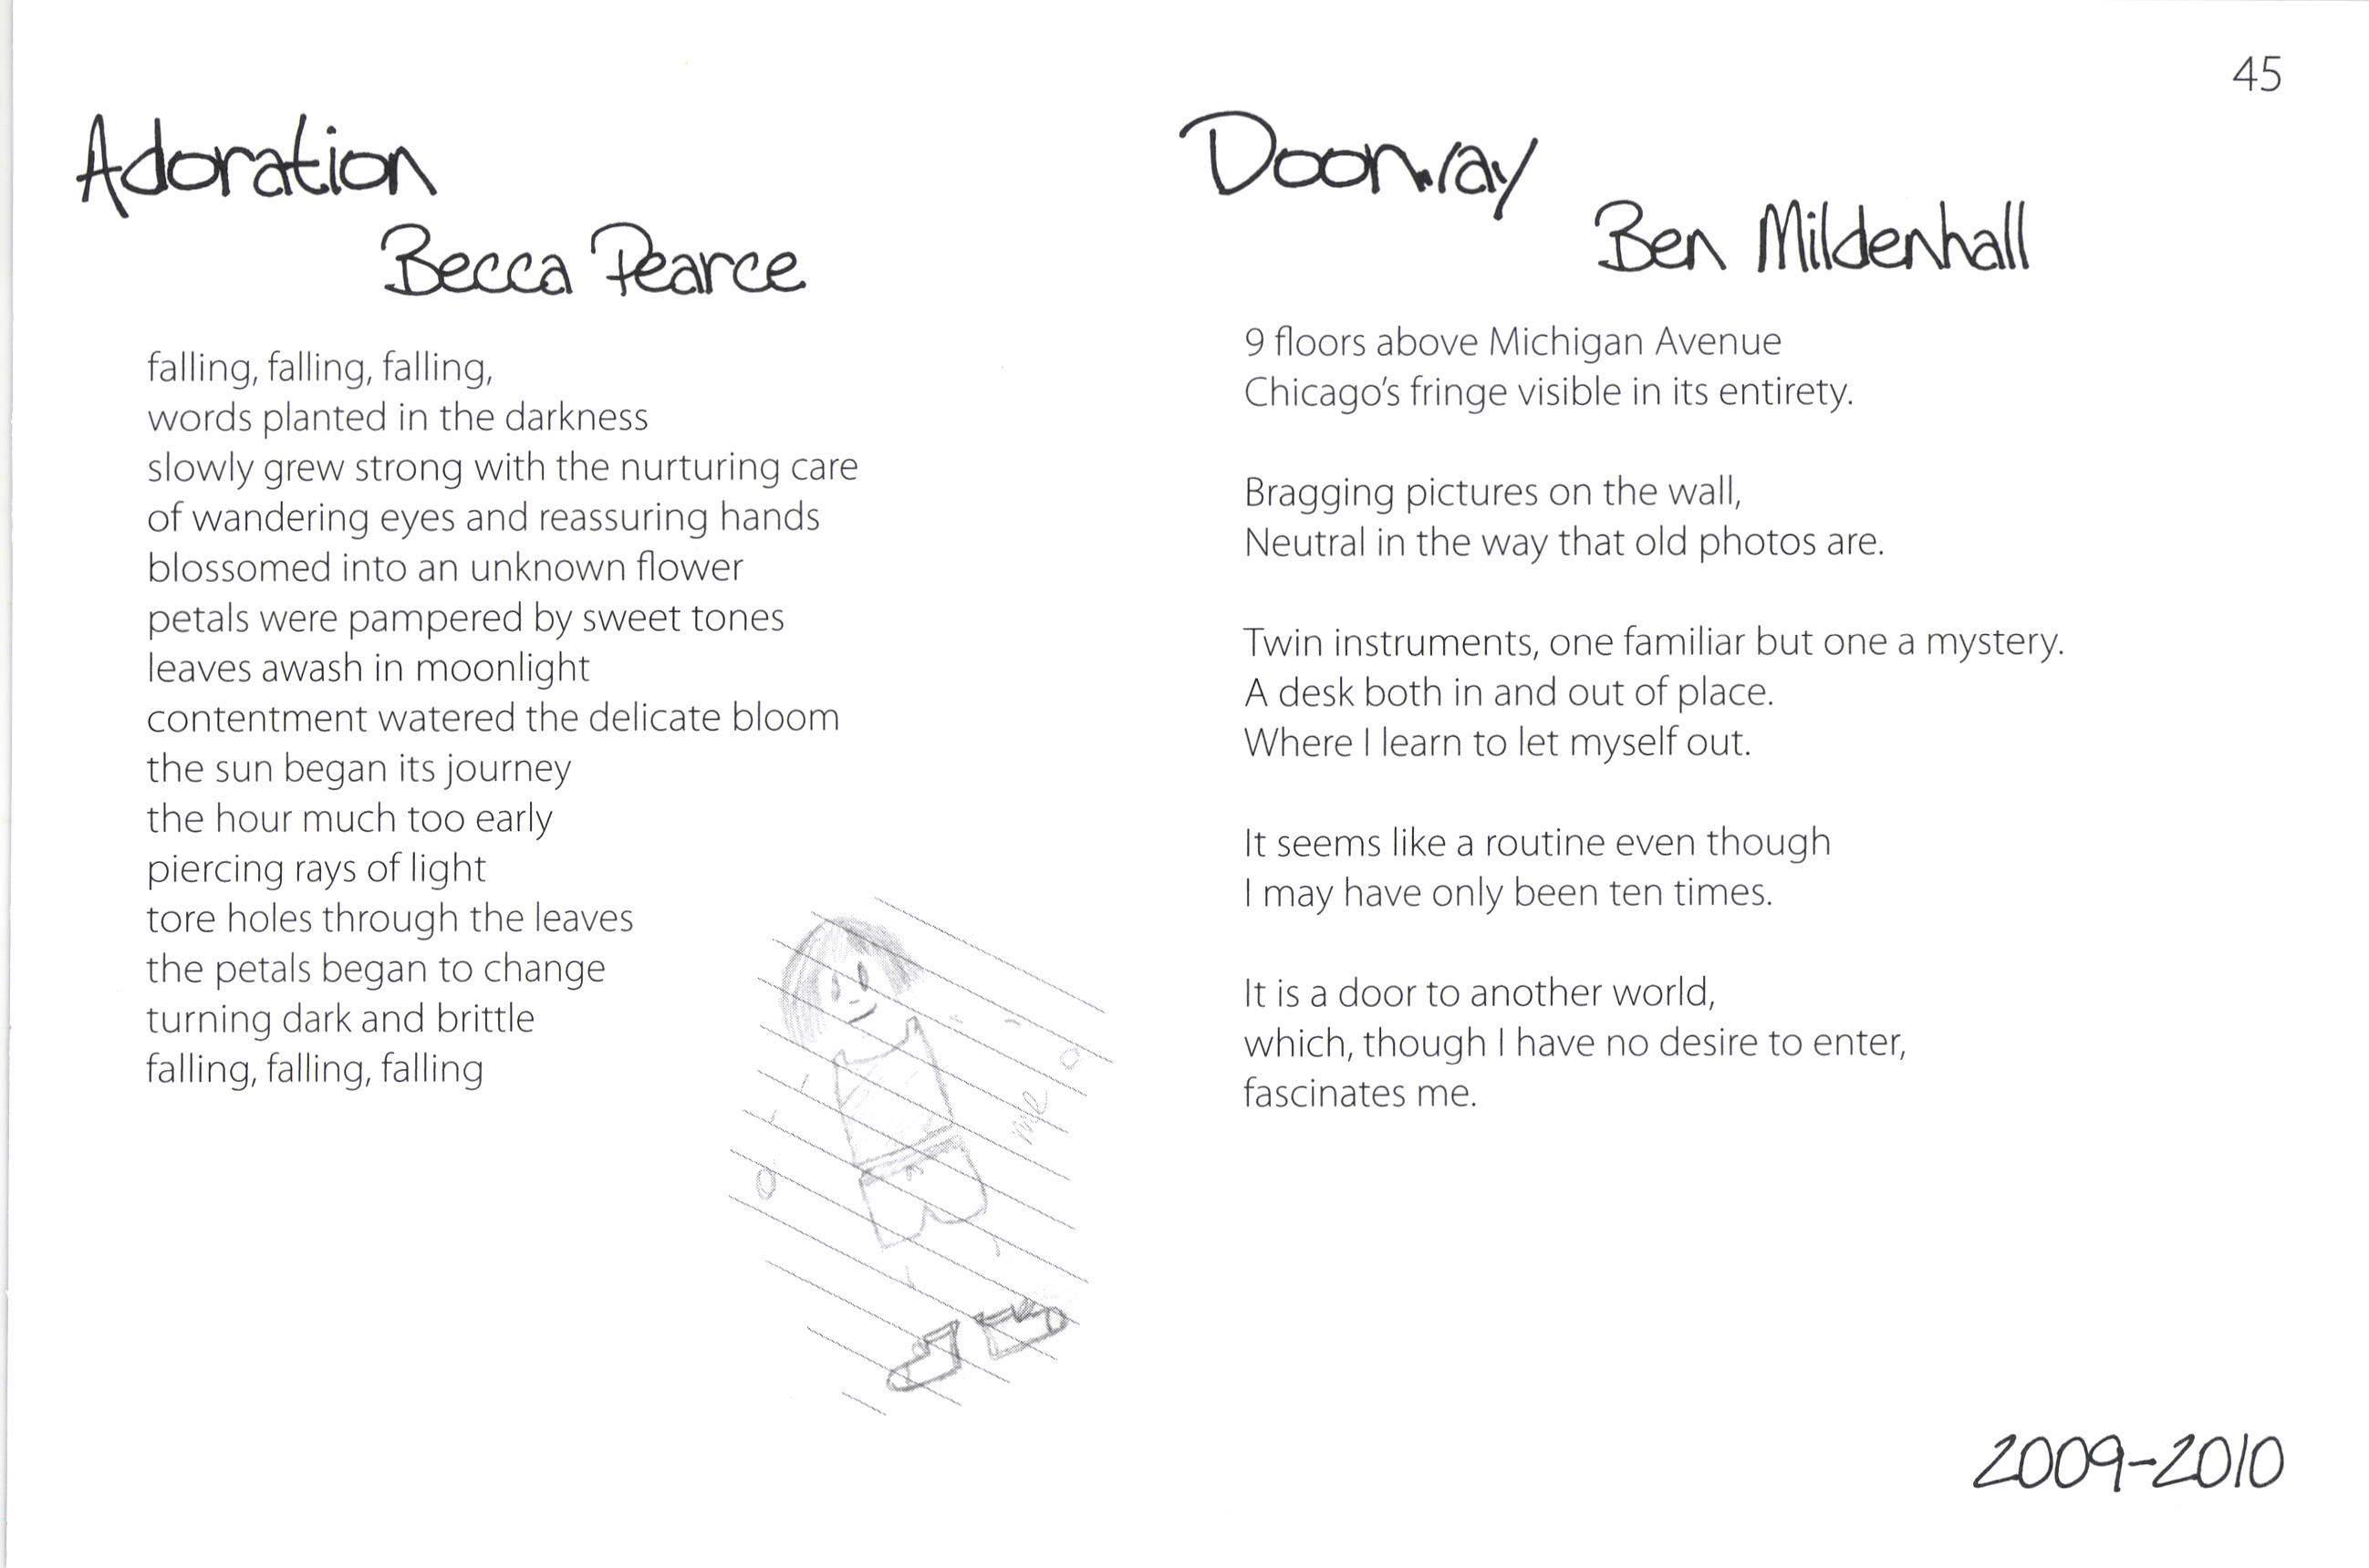 45
Adoration
Becca Pearce
falling, falling, falling,
words planted in the darkness
slowly grew strong with the nurturing care
of wandering eyes and reassuring hands
blossomed into an unknown flower
petals were pampered by sweet tones
leaves awash in moonlight
contentment watered the delicate bloom
the sun began its journey
the hour much too early
piercing rays of light
tore holes through the leaves
the petals began to change
turning dark and brittle
falling, falling, falling
me
Doorway
Ben Mildenhall
9 floors above Michigan Avenue
Chicago's fringe visible in its entirety.
Bragging pictures on the wall,
Neutral in the way that old photos are.
Twin instruments, one familiar but one a mystery.
A desk both in and out of place.
Where I learn to let myself out.
It seems like a routine even though
I may have only been ten times.
It is a door to another world,
which, though I have no desire to enter,
fascinates me.
2009-2010